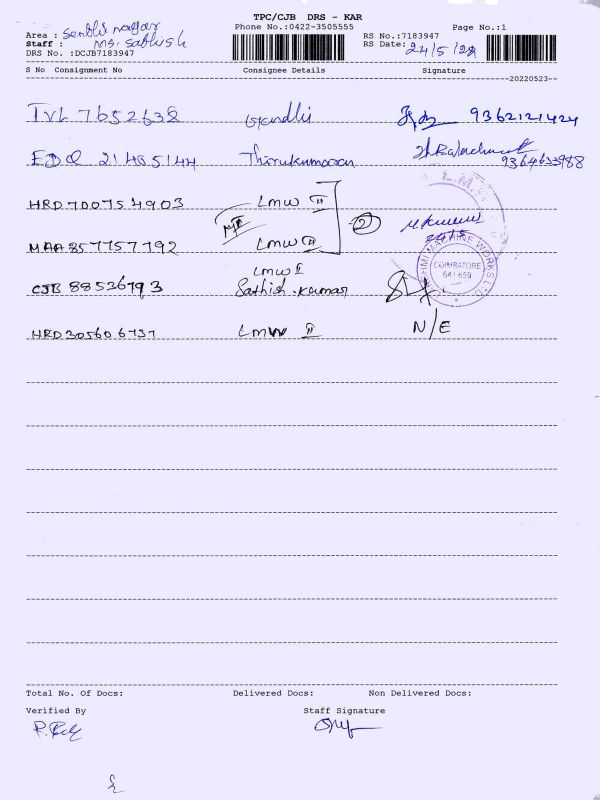 TPC/CJB DRS - KAR
Phone No.:0422-3505555 Page No.:1
Area : Senthil nagar
RS No.:7183947
Staff : Ms. Sathish
RS Date: 24/5/22
DRS No. :DCJB7183947
S No Consignment No Consignee Details Signature
20220523
TVL 7652638 Gandhi 9362121424
EDQ 21405144 Thirukumaran
9364633988
L.M.W
HRD700754903 LMW II
2
MAA857757792 LMW II
LAKSHMI MACHINE WORKS LTD
COIMBATORE
641 659
LMW II
CJB 88536793 Sathish.Kumar
HRD305606737 LMW II N/E
Total No. Of Docs: Delivered Docs: Non Delivered Docs:
Verified By Staff Signature